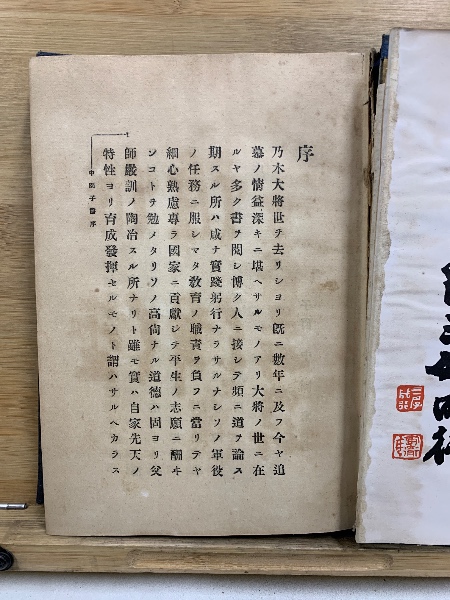 序
乃木大將世チ去リシヨリ既ニ數年ニ及フ今ヤ追
慕ノ情益深キニ堪ヘサルモノアリ大將ノ世ニ在
ルヤ多ク書ヲ閱シ博ク人ニ接シテ頻ニ道ヲ論ス
期スル所ハ咸ナ實踐躬行ナラサルナシソノ軍役
ノ任務ニ服シマタ敎育ノ職責ヲ負フニ當リテヤ
細心熟慮專ラ國家ニ貢獻シテ平生ノ志願ニ酬ヰ
ンコトヲ勉メタリソノ高尙ナル道德ハ固ヨリ父
師嚴訓ノ陶冶スル所ナリト雖モ實ハ自家先天ノ
特性ヨリ育成發揮セルモノト謂ハサルヘカラス
序